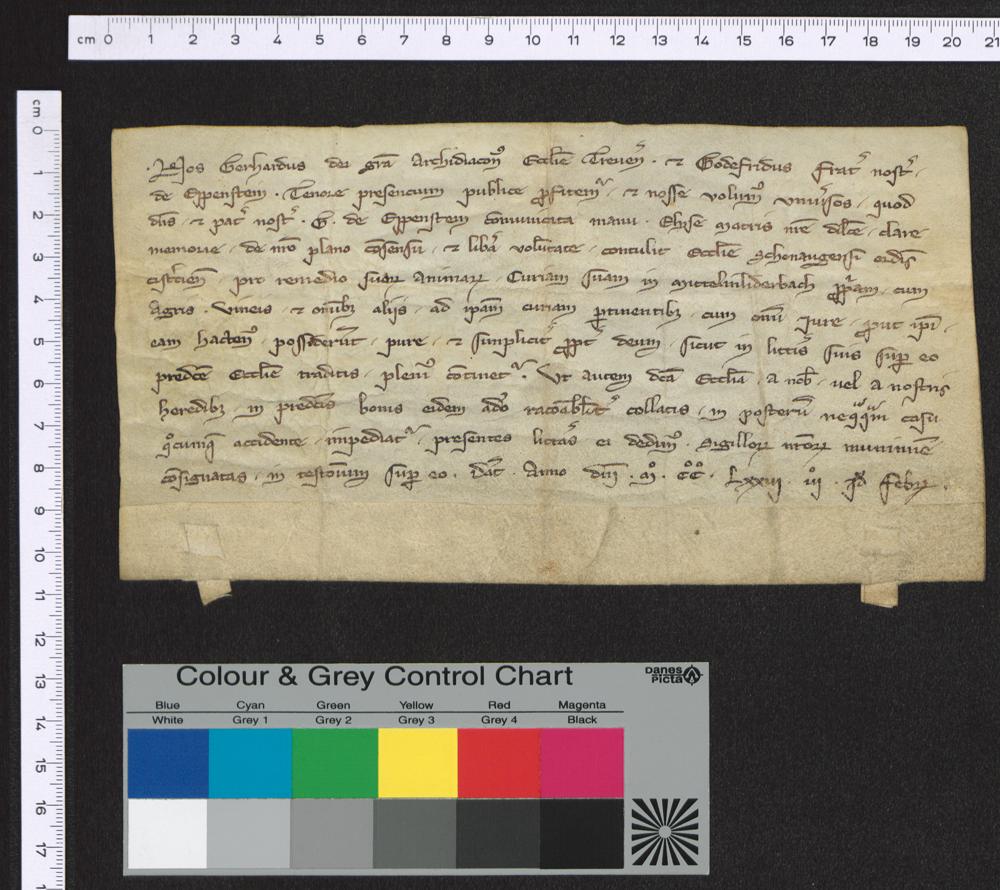 cm 0 1 2 3 4 5 6 7 8 9 10 11 12 13 14 15 16 17 18 19 20 21
cm 0 1 2 3 4 5 6 7 8 9 10 11 12 13 14 15 16 17
.Nos Gerhardus dei gr̄a Archidiacon᷒ Eccl̄ie Treuen̄ . ⁊ Godefridus frat᷑ nost᷑ .
de Eppenstein . Tenore presencium publice ꝓfitem᷑ . ⁊ nosse volum᷒ vniu᷑sos . quod
dn̄s . ⁊ pat᷑ nost᷑ . G . de Eppenstein cōmunicata manu . Elyse matris nr̄e dilc̄e . clare
memorie . de nr̄o plano cōsensu . ⁊ lib᷑a volūtate . contulit Eccl̄ie Schonaugensi ordīs
cist᷑cien̄ . pro remedio suaꝝ Animaꝝ . Curiam suam in mittelinliderbach ꝓp᷑am . cum
Agris . Vineis . ⁊ om̄ibꝫ alijs . ad ip̄am curiam ꝑtinentibꝫ . cum om̄i Jure . ꝓut ip̄i .
eam hacten᷒ . possiderūt . pure . ⁊ simplicit᷑ ꝓpt᷑ deum . sicut in litt᷑is suis sup᷑ eo
predc̄e Eccl̄ie traditis . pleni᷒ cōtinet᷑ . Vt autem dc̄a Eccl̄ia . a nob̄ . uel a nostris
heredibꝫ . in predc̄is bonis eidem adeo racōabilit᷑ collatis . in posterū neq̄q̄m casu
q̊cumq̄ accidente . impediat᷑ . presentes litt᷑as ei dedim᷒ . Sigilloꝝ nr̄oꝝ munimīe
cōsignatas . in testoīum sup᷑ eo . Dat̄ . Anno dn̄i . m̊ . c̊c̊ . Lxxiii . iii̊ . Id᷑ febrꝝ .
Colour & Grey Control Chart
Danes Picta
Blue Cyan Green Yellow Red Magenta
White Grey 1 Grey 2 Grey 3 Grey 4 Black